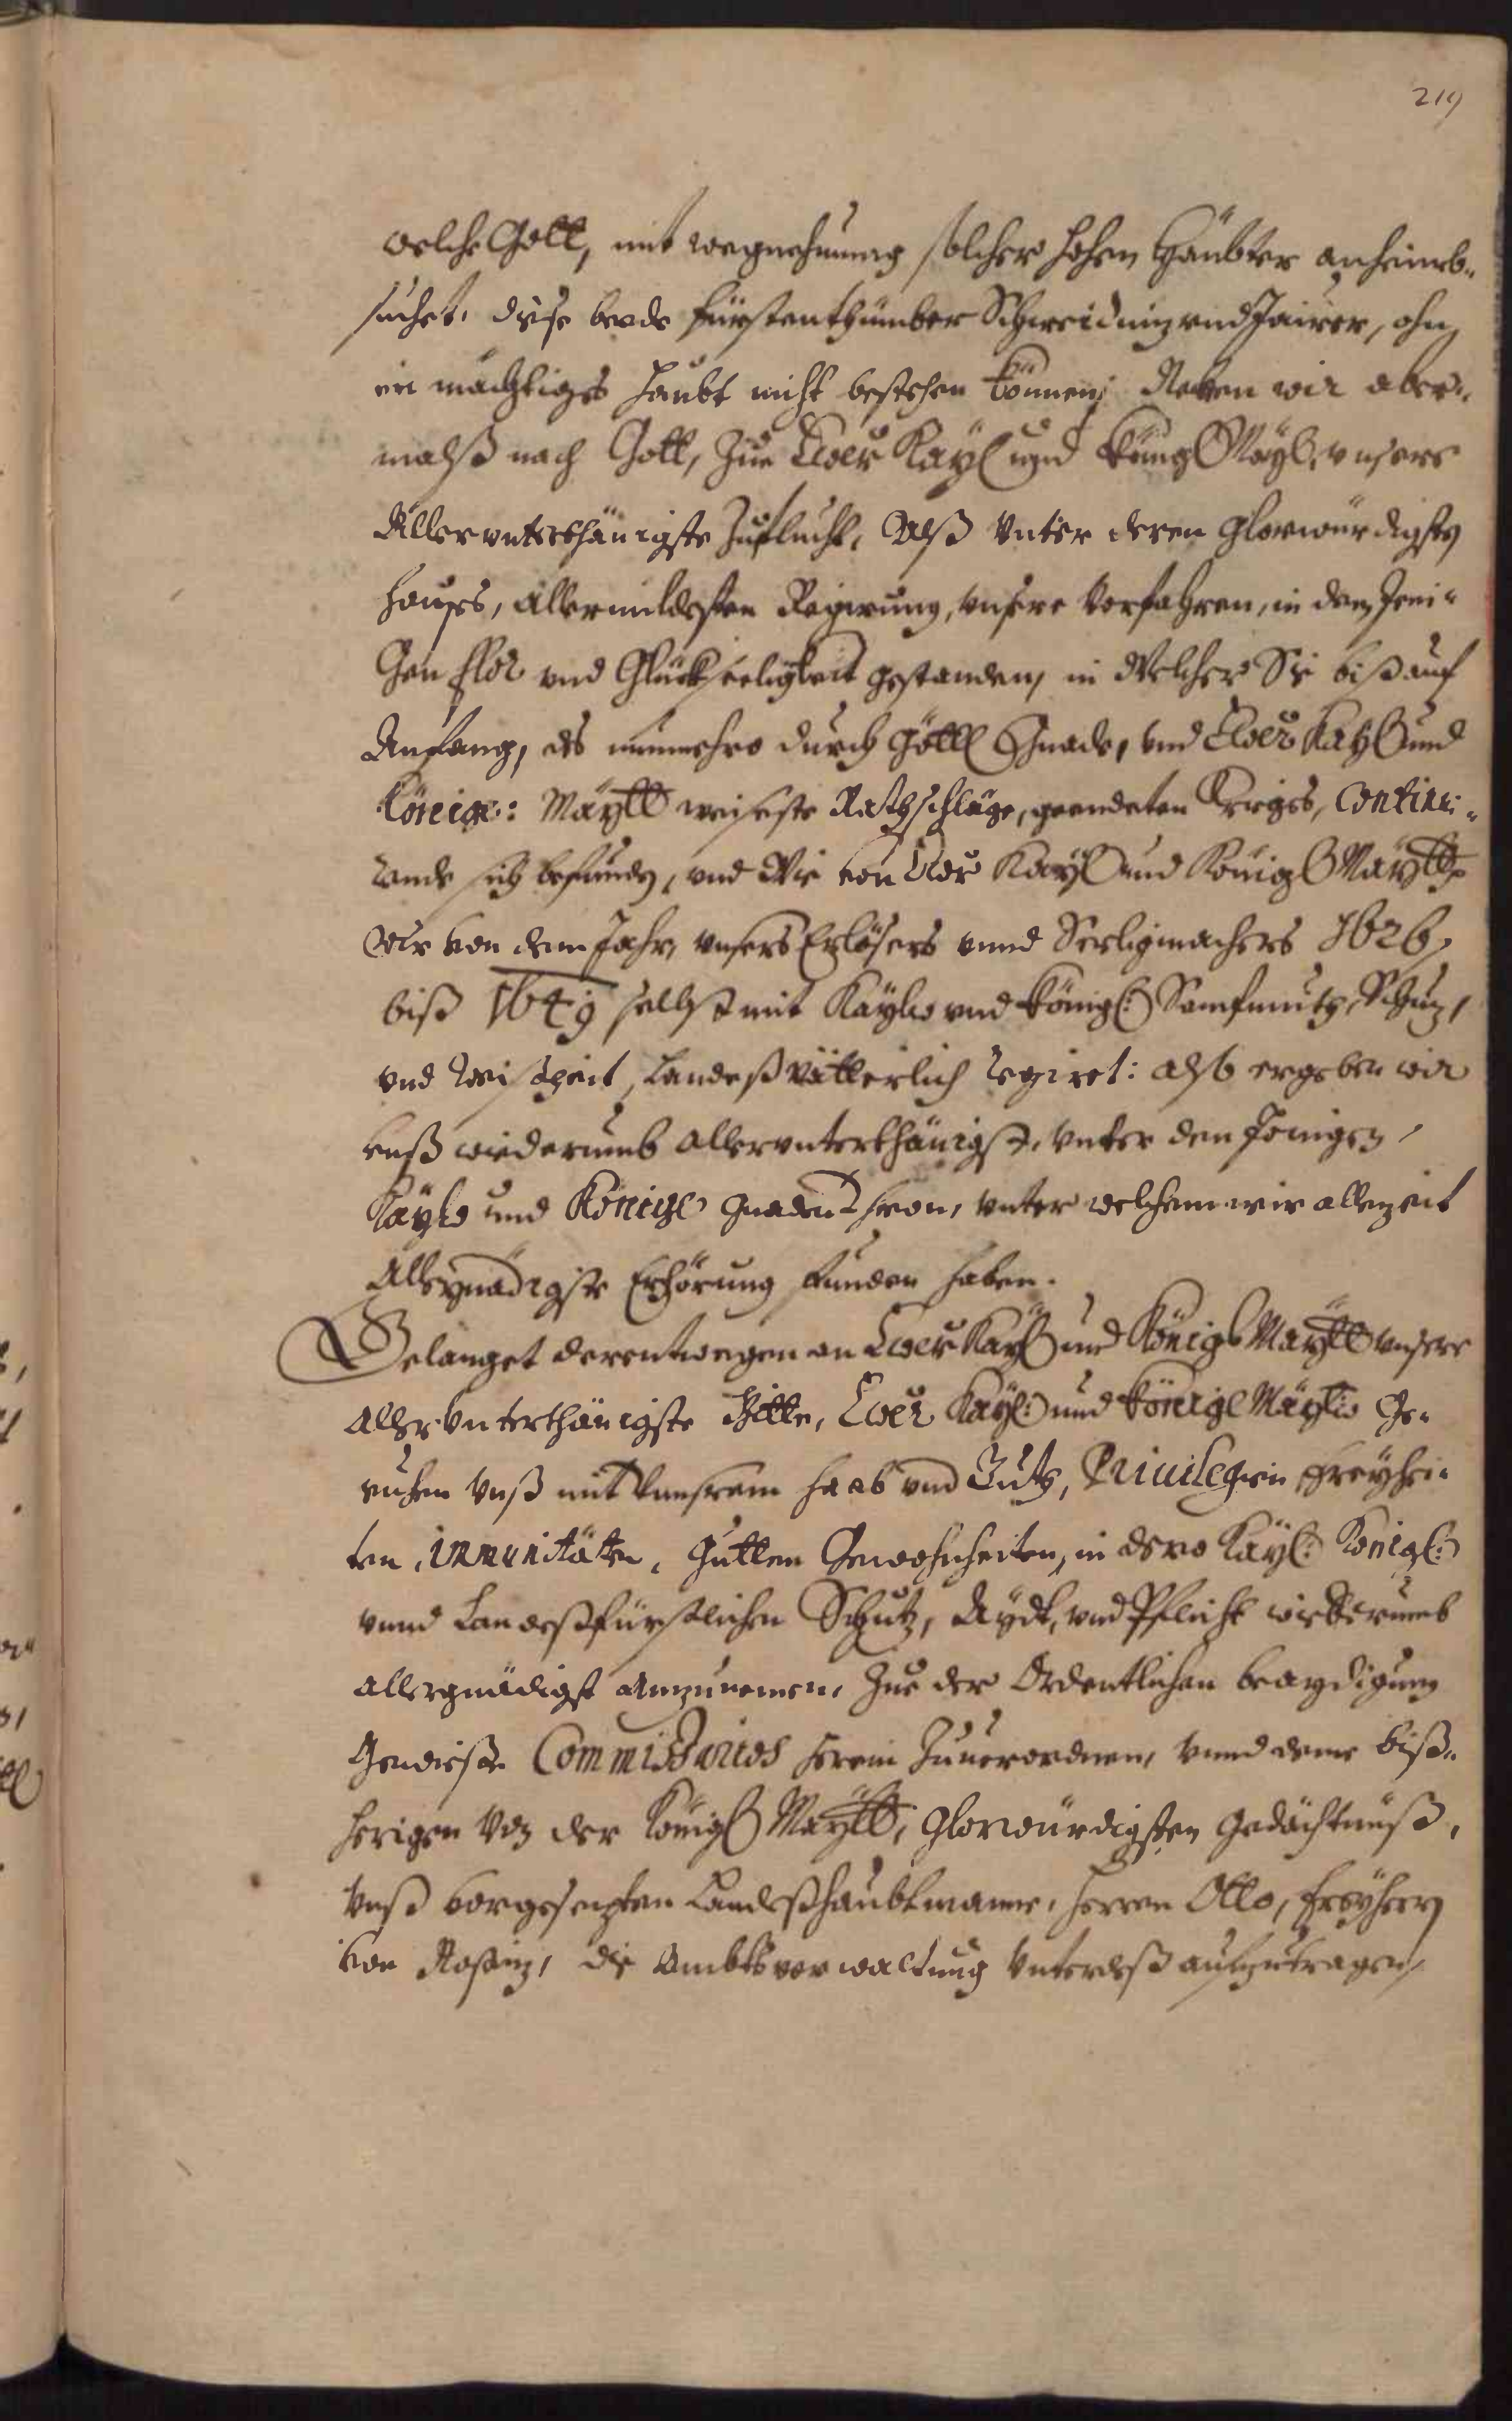 219
welche Gott, mit wegnehmung solcher hohen Häubter anheimb-
suchet. diese beede fürstenthümber Schweidniz vnd Jauer, ohn
ein mächtiges Haubt nicht bestehen können; Neben wir aber-
malß nach Gott, zue Ewer Kayl und königl Mayl. vnsere
Allervnterthänigste Zuflucht, Alß vnter deren glorwürdigsten
Hauses, allermildesten Regirung, vnsere Vorfahren, in dem Jeni-
Gen flor vnd Glückseeligkeit gestanden, in Welcher Sie biß auf
Anfang, des nunmehro durch Göttl Gnade, vnd Ewer Kayl und
Königl: Maytt weiseste Rathschläge, geendeten Kriges, Continu-
irende sich befunden, vnd Wie von Ewer Kayl und Königl Maytt
Wir von dem Jahr, vnsers Erlösers vnnd Seeligmachers 1626,
biß 1649 selbst mit Kayl. vnd königl: Sanfmuth, Schuz,
vnd Weißheit, Landeßvätterlich regiret: also ergeben wir
vnß wiederumb allervnterthänigst, vnter den Jenigen
Kayl. und Königl Gnadenthron, vnter welchem wir allezeit
Allergnädigste Erhörung funden haben.
Gelanget derentwegen an Ewer Kayl und Königl Maytt vnsere
Aller vnterthänigste Bitte, Ewer Kayl: und königl Maytt. Ge-
ruhen vnß mit vnserem Haab vnd Gutt, Privilegien Freyhei-
ten, immunitäten, Gutten Gewohnheiten, in dero Kayl: Königl:
vnnd Landeßfürstlichen Schutz, Aydt, vnd Pflicht wiederumb
allergnädigst anzunemen, Zue der Ordentlichen beaydigung
Gewieße Commissarios herein zuuerordnen, vnnd deme biß-
herigen Von der Königl Maytt, Glorwürdigsten Gedächtnüß,
vnß vorgesezten Landeßhaubtmanne, Herren Otto, Freyherrn
von Nostiz, die Ambtsverwaltung vnterdeß aufzutragen,